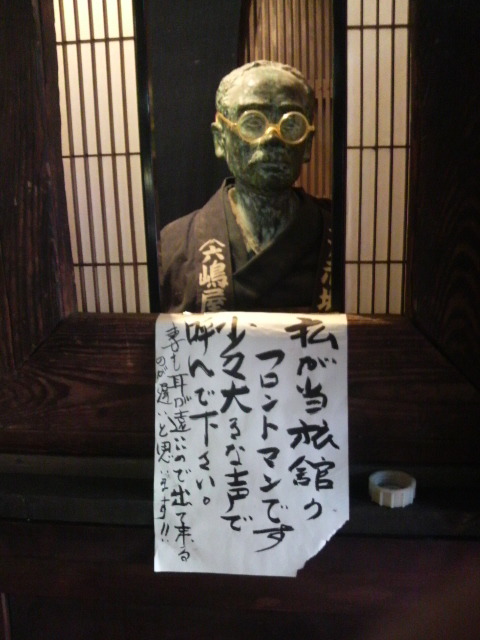 六嶋屋
私が当旅館の
フロントマンです
少々大きな声で
呼んで下さい。
妻も耳が遠いので出て来る
のが遅いと思います!!